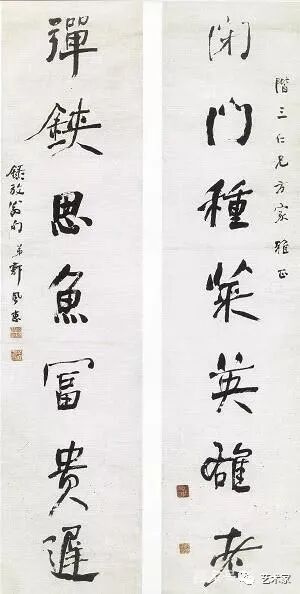 階三仁兄方家雅正
閉門種菜英雄老
彈鋏思魚富貴遲
錄放翁句 弟郭風惠
艺术家